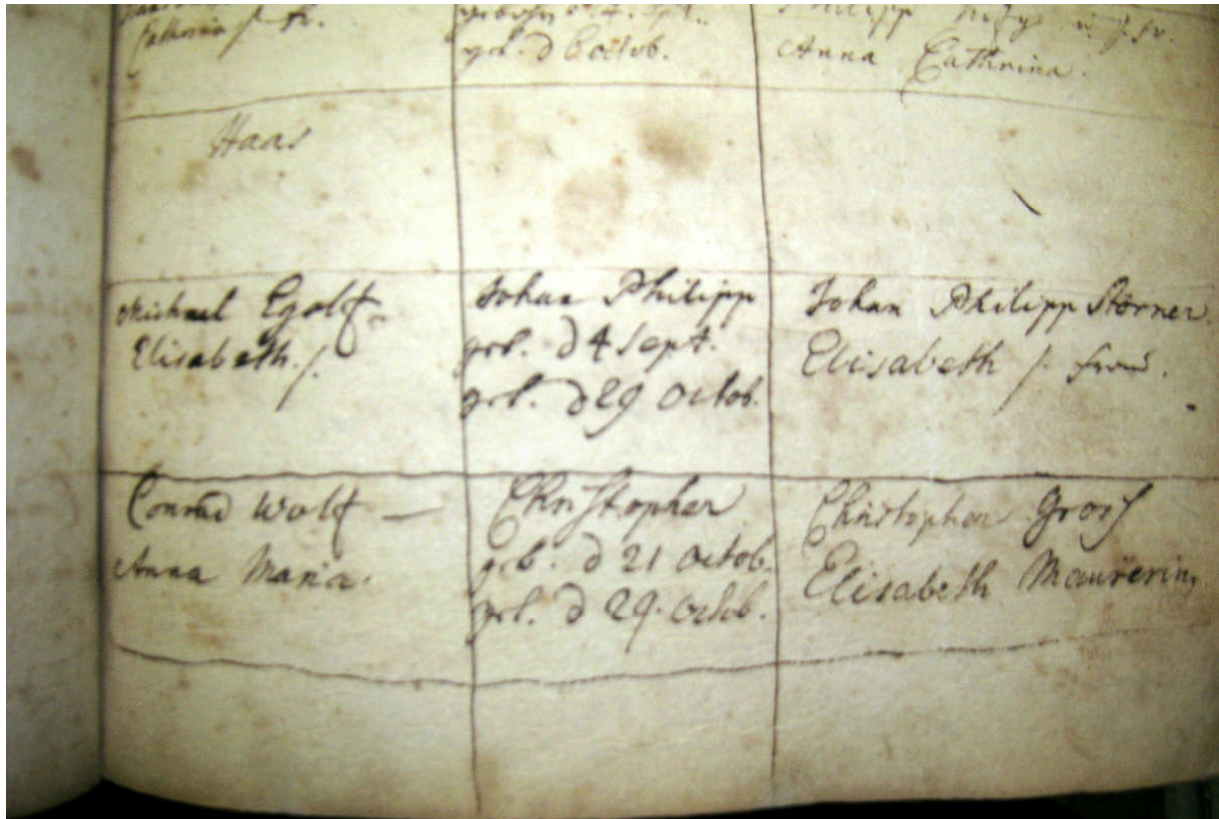 Cathrina /. fr.
get. d 6 octob.
Anna Cathrina.
Haas
Michael Egolf
Elisabeth. /.
Johan Philipp
geb. d 4 Sept.
get. d 29 Octob.
Johan Philipp Störner
Elisabeth /. frau.
Conrad Wolf —
Anna Maria.
Christopher
geb. d 21 octob.
get. d 29. octob.
Christopher Gross
Elisabeth Maurerin,